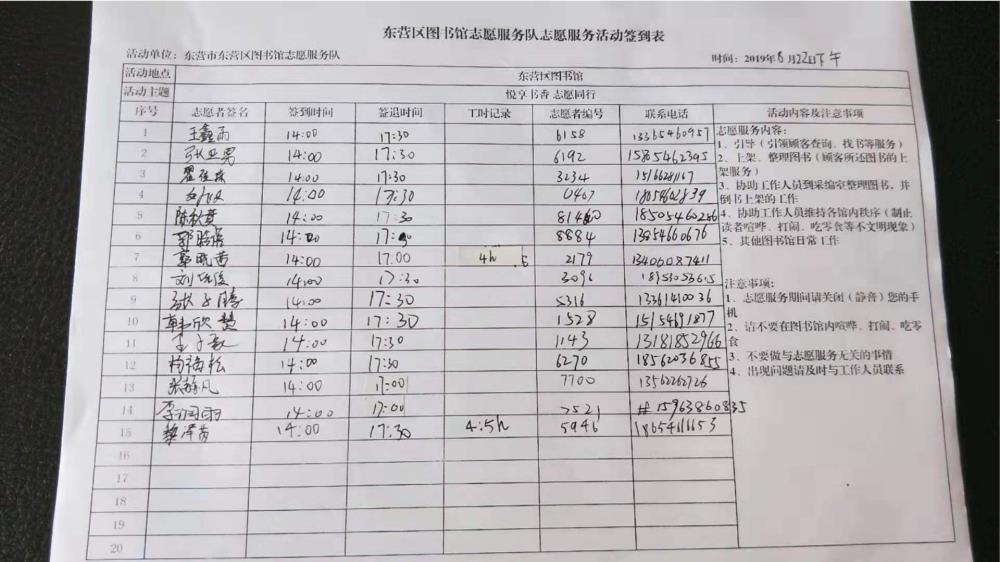 东营区图书馆志愿服务队志愿服务活动签到表
活动单位：东营市东营区图书馆志愿服务队 时间：2019年8月22日下午
活动地点 东营区图书馆
活动主题 悦享书香 志愿同行
序号 志愿者签名 签到时间 签退时间 工时记录 志愿者编号 联系电话 活动内容及注意事项
1 王鑫雨 14:00 17:30 6158 13365460957
2 张亚男 14:00 17:30 6192 1585462395
3 14:00 17:30 3234 15166281167
4 14:00 17:30 0467
5 陈秋萱 14:00 17:30 18505460256
6 郭 14:00 8884 13854660676
7 14:00 17:00 4h .5 2179 13406087411
8 刘 14:00 17:30 3096
9 张子腾 14:00 17:30 5316 13361410036
10 韩欣慧 14:00 17:30 1528 15154691877
11 王子 14:00 17:30 1143 13181852966
12 杨福松 14:00 17:30 6270 18562036855
13 张静凡 14:00 17:00 7700 13562262726
14 李润雨 14:00 17:00 15963860835
15 黎泽茵 14:00 17:30 4.5h 5946 18654111653
16
17
18
19
20
志愿服务内容：
1、引导（引领顾客查询、找书等服务）
2、上架、整理图书（顾客所还图书的上
架服务）
3、协助工作人员到采编室整理图书，并
倒书上架的工作
4、协助工作人员维持各馆内秩序（制止
读者喧哗、打闹、吃零食等不文明现象）
5、其他图书馆日常工作
注意事项：
1、志愿服务期间请关闭（静音）您的手
机
2、请不要在图书馆内喧哗、打闹、吃零
食
3、不要做与志愿服务无关的事情
4、出现问题请及时与工作人员联系